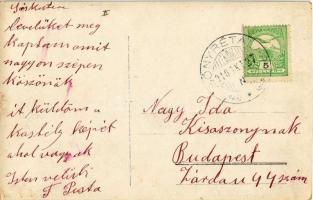 levelüket meg
kaptam amit
nagyon szépen
köszönök
it küldöm a
kastély képét
ahol vagyok
Isten veletek
Nagy Ida
Kisaszonynak
Budapest
Zárda u 44 szám